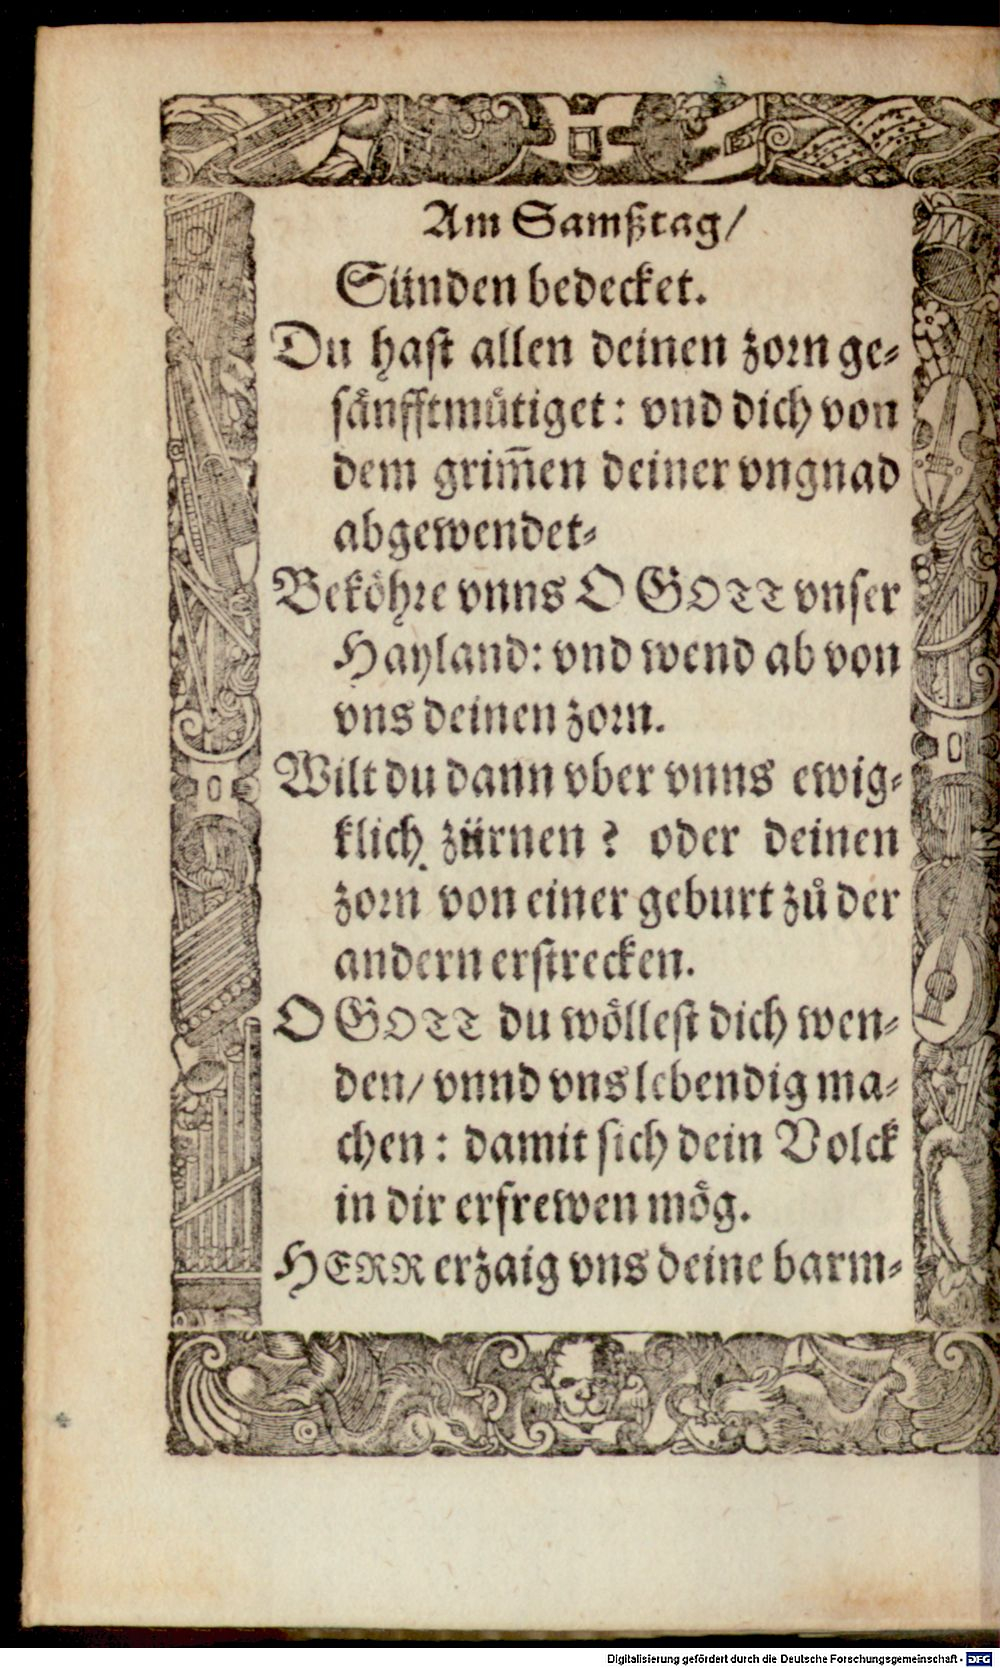 Am Samßtag/
Sünden bedecket.
Du hast allen deinen zorn ge-
sänfftmütiget: vnd dich von
dem grim̃en deiner vngnad
abgewendet-
Beköhre vnns O GOTT vnser
Hayland: vnd wend ab von
vns deinen zorn.
Wilt du dann vber vnns ewig-
klich zürnen? oder deinen
zorn von einer geburt zů der
andern erstrecken.
O GOTT du wöllest dich wen-
den/ vnnd vns lebendig ma-
chen: damit sich dein Volck
in dir erfrewen mög.
HERR erzaig vns deine barm-
Digitalisierung gefördert durch die Deutsche Forschungsgemeinschaft - DFG